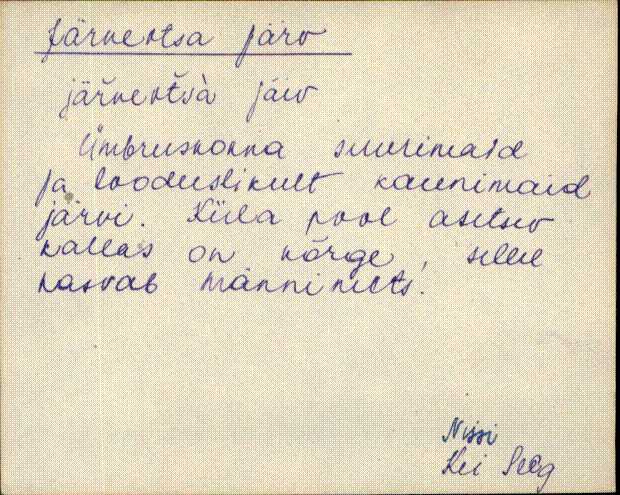 Järveotsa järv
järveotsà järv
Ümbruskonna suurimaid
ja looduslikult kaunimaid
järvi. Küla pool asetsev
kallas on kõrge, sellel
kasvab männimets.
Nissi